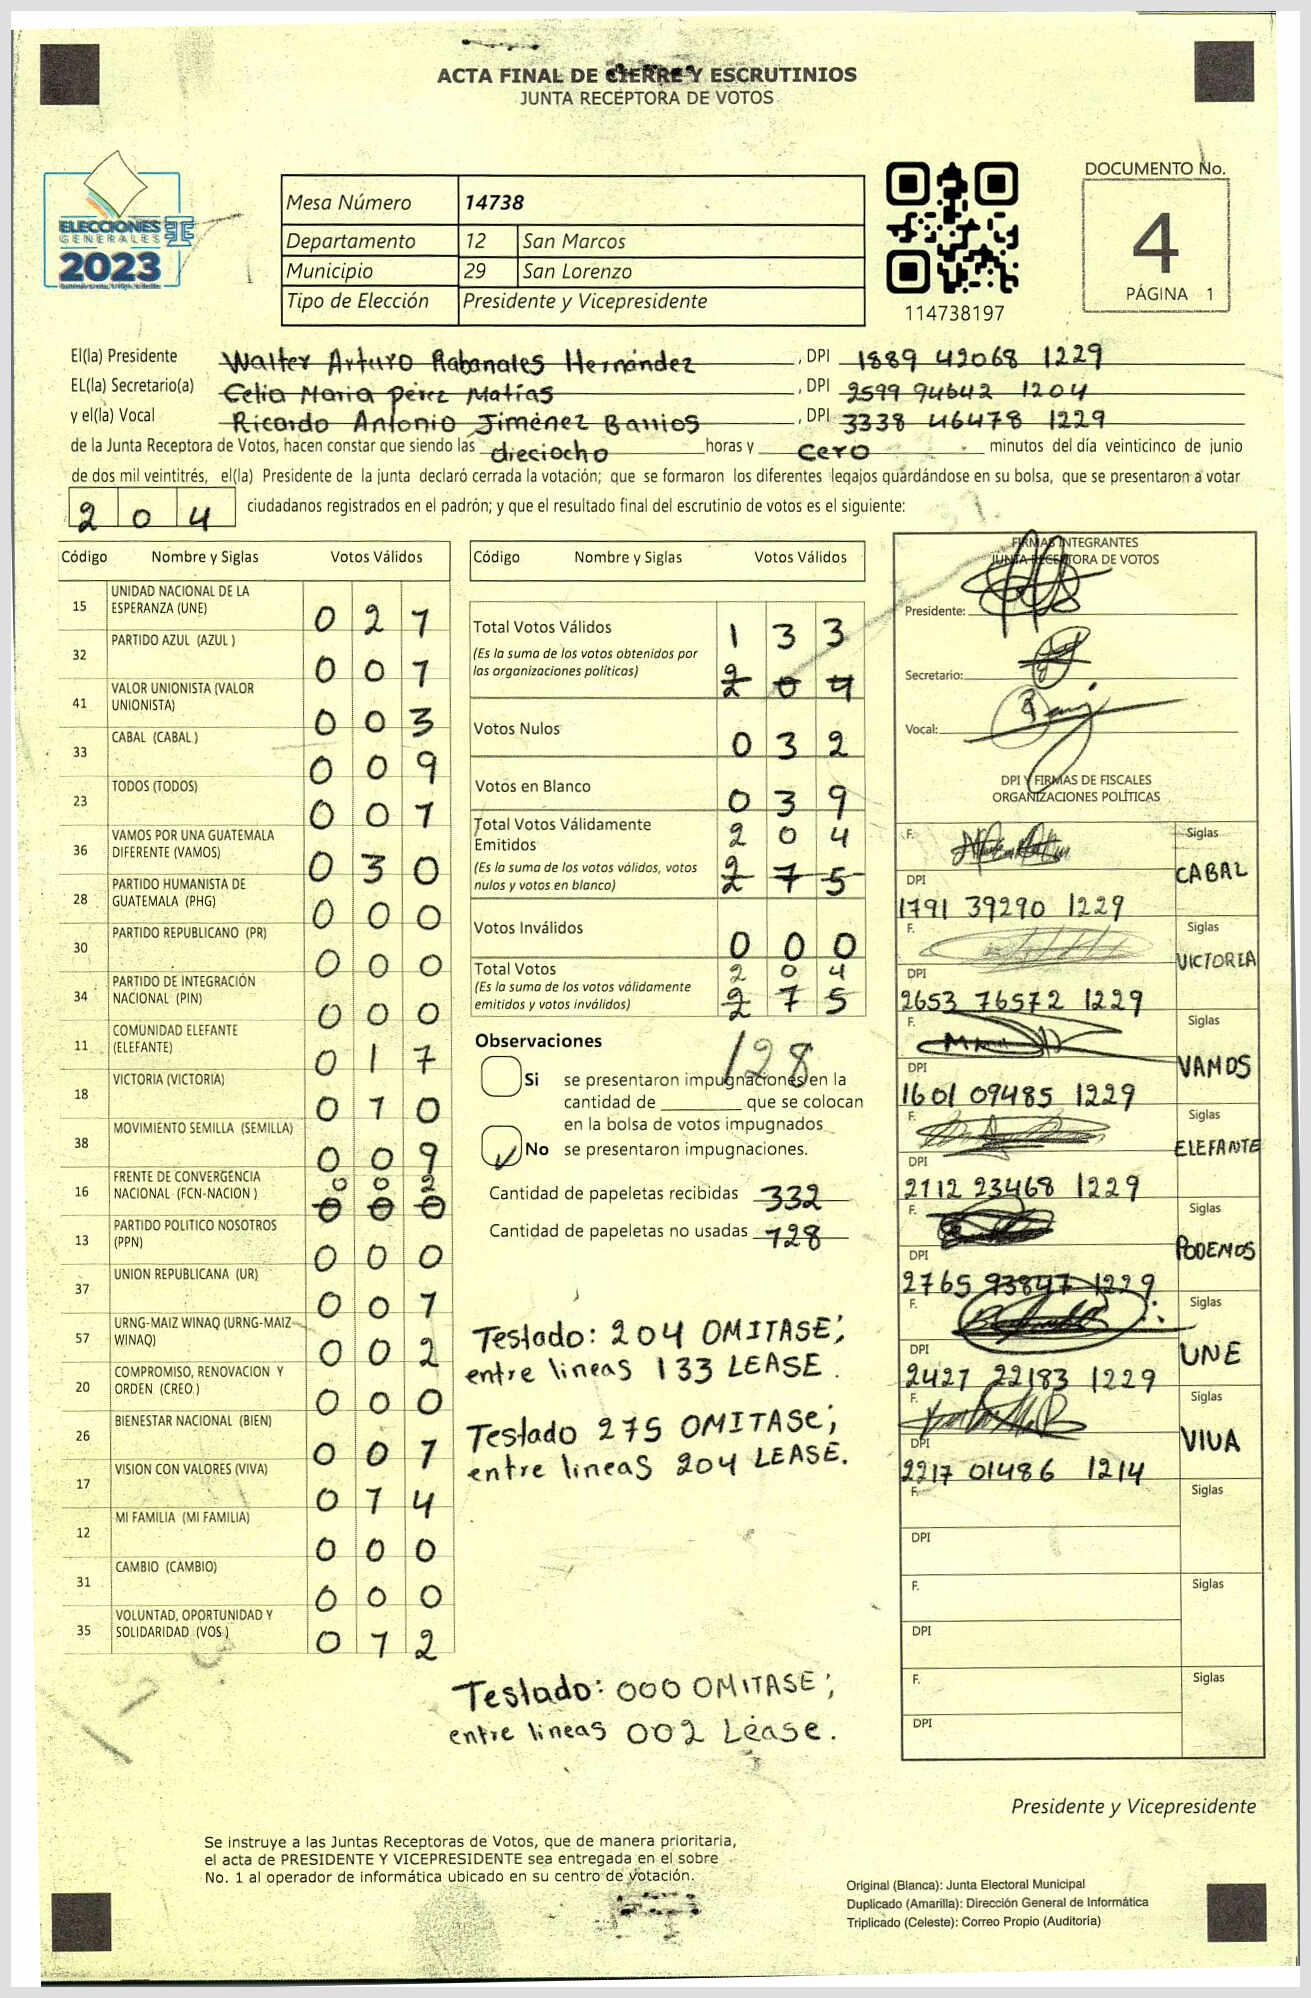 ACTA FINAL DE CIERRE Y ESCRUTINIOS
JUNTA RECEPTORA DE VOTOS
ELECCIONES
GENERALES
2023
Mesa Número 14738
Departamento 12 San Marcos
Municipio 29 San Lorenzo
Tipo de Elección Presidente y Vicepresidente
114738197
DOCUMENTO No.
4
PÁGINA 1
El(la) Presidente Walter Arturo Rabanales Hernández, DPI 1889 42068 1229
EL(la) Secretario(a) Celia Maria pérez Matías, DPI 2599 94642 1204
y el(la) Vocal Ricardo Antonio Jiménez Barrios, DPI 3338 46478 1229
de la Junta Receptora de Votos, hacen constar que siendo las dieciocho horas y cero minutos del día veinticinco de junio
de dos mil veintitrés, el(la) Presidente de la junta declaró cerrada la votación; que se formaron los diferentes legajos guardándose en su bolsa, que se presentaron a votar
204 ciudadanos registrados en el padrón; y que el resultado final del escrutinio de votos es el siguiente:
Código Nombre y Siglas Votos Válidos
15 UNIDAD NACIONAL DE LA
ESPERANZA (UNE) 0 2 1
32 PARTIDO AZUL (AZUL ) 0 0 1
41 VALOR UNIONISTA (VALOR
UNIONISTA) 0 0 3
33 CABAL (CABAL ) 0 0 9
23 TODOS (TODOS) 0 0 1
36 VAMOS POR UNA GUATEMALA
DIFERENTE (VAMOS) 0 3 0
28 PARTIDO HUMANISTA DE
GUATEMALA (PHG) 0 0 0
30 PARTIDO REPUBLICANO (PR) 0 0 0
34 PARTIDO DE INTEGRACIÓN
NACIONAL (PIN) 0 0 0
11 COMUNIDAD ELEFANTE
(ELEFANTE) 0 1 7
18 VICTORIA (VICTORIA) 0 1 0
38 MOVIMIENTO SEMILLA (SEMILLA) 0 0 9
16 FRENTE DE CONVERGENCIA
NACIONAL (FCN-NACION ) 0 0 2
0 0 0
13 PARTIDO POLITICO NOSOTROS
(PPN) 0 0 0
37 UNION REPUBLICANA (UR) 0 0 1
57 URNG-MAIZ WINAQ (URNG-MAIZ
WINAQ) 0 0 2
20 COMPROMISO, RENOVACION Y
ORDEN (CREO ) 0 0 0
26 BIENESTAR NACIONAL (BIEN) 0 0 1
17 VISION CON VALORES (VIVA) 0 1 4
12 MI FAMILIA (MI FAMILIA) 0 0 0
31 CAMBIO (CAMBIO) 0 0 0
35 VOLUNTAD, OPORTUNIDAD Y
SOLIDARIDAD (VOS ) 0 1 2
Código Nombre y Siglas Votos Válidos
Total Votos Válidos 1 3 3
(Es la suma de los votos obtenidos por
las organizaciones políticas) 2 0 4
Votos Nulos 0 3 2
Votos en Blanco 0 3 9
Total Votos Válidamente
Emitidos 2 0 4
(Es la suma de los votos válidos, votos
nulos y votos en blanco) 2 7 5
Votos Inválidos 0 0 0
Total Votos 2 0 4
(Es la suma de los votos válidamente
emitidos y votos inválidos) 2 7 5
Observaciones 128
Si se presentaron impugnaciones en la
cantidad de ________ que se colocan
en la bolsa de votos impugnados
No se presentaron impugnaciones.
Cantidad de papeletas recibidas 332
Cantidad de papeletas no usadas 128
Testado: 204 OMITASE;
entre lineas 133 LEASE.
Testado 275 OMITASE;
entre lineas 204 LEASE.
Testado: 000 OMITASE;
entre lineas 002 Léase.
FIRMAS INTEGRANTES
JUNTA RECEPTORA DE VOTOS
Presidente:
Secretario:
Vocal:
DPI Y FIRMAS DE FISCALES
ORGANIZACIONES POLÍTICAS
F. Siglas
CABAL
DPI
1791 39290 1229
F. Siglas
VICTORIA
DPI
2653 76572 1229
F. Siglas
VAMOS
DPI
1601 09485 1229
F. Siglas
ELEFANTE
DPI
2112 23468 1229
F. Siglas
PODEMOS
DPI
2765 93847 1229
F. Siglas
UNE
DPI
2427 22183 1229
F. Siglas
VIVA
DPI
2217 01486 1214
F. Siglas
DPI
F. Siglas
DPI
F. Siglas
DPI
Presidente y Vicepresidente
Se instruye a las Juntas Receptoras de Votos, que de manera prioritaria,
el acta de PRESIDENTE Y VICEPRESIDENTE sea entregada en el sobre
No. 1 al operador de informática ubicado en su centro de votación.
Original (Blanca): Junta Electoral Municipal
Duplicado (Amarilla): Dirección General de Informática
Triplicado (Celeste): Correo Propio (Auditoría)